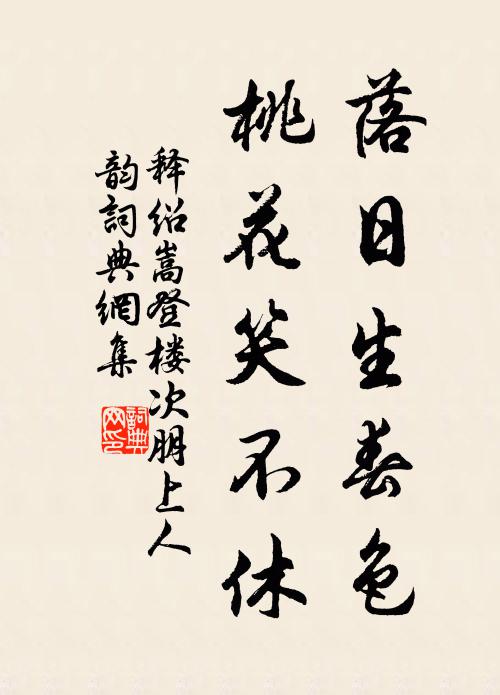 落日生春色
桃花笑不休
释绍嵩登楼次朋上人
韵詞典網集
詞典网印